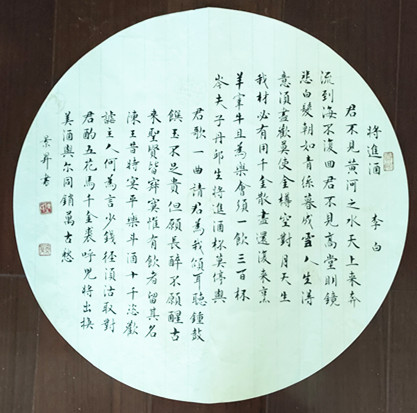 将進酒 李白
君不見黄河之水天上来奔
流到海不復回君不見高堂明鏡
悲白髮朝如青絲暮成雪人生得
意須盡歡莫使金樽空對月天生
我材必有用千金散盡還復来烹
羊宰牛且為樂會須一飲三百杯
岑夫子丹邱生将進酒杯莫停與
君歌一曲請君為我傾耳聽鐘鼓
饌玉不足貴但願長醉不願醒古
来聖賢皆寂寞惟有飲者留其名
陳王昔時宴平樂斗酒十千恣歡
謔主人何為言少錢徑須沽取對
君酌五花馬千金裘呼兒将出换
美酒與尔同銷萬古愁
景昇书